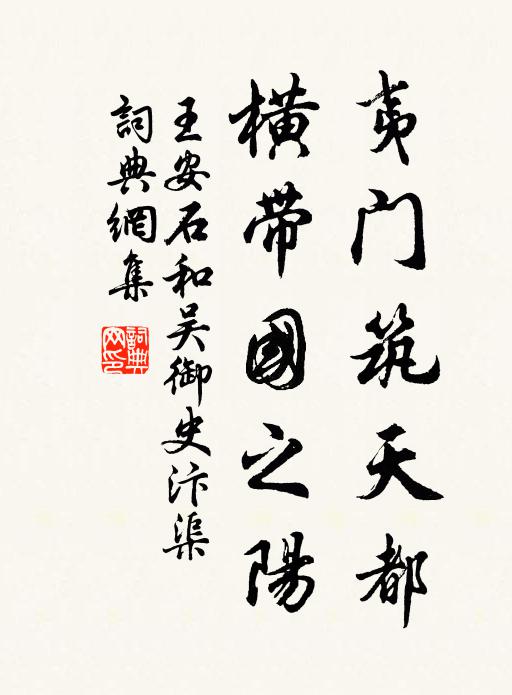 夷门筑天都
橫带國之陽
王安石和吴御史汴渠
詞典網集
詞典网印